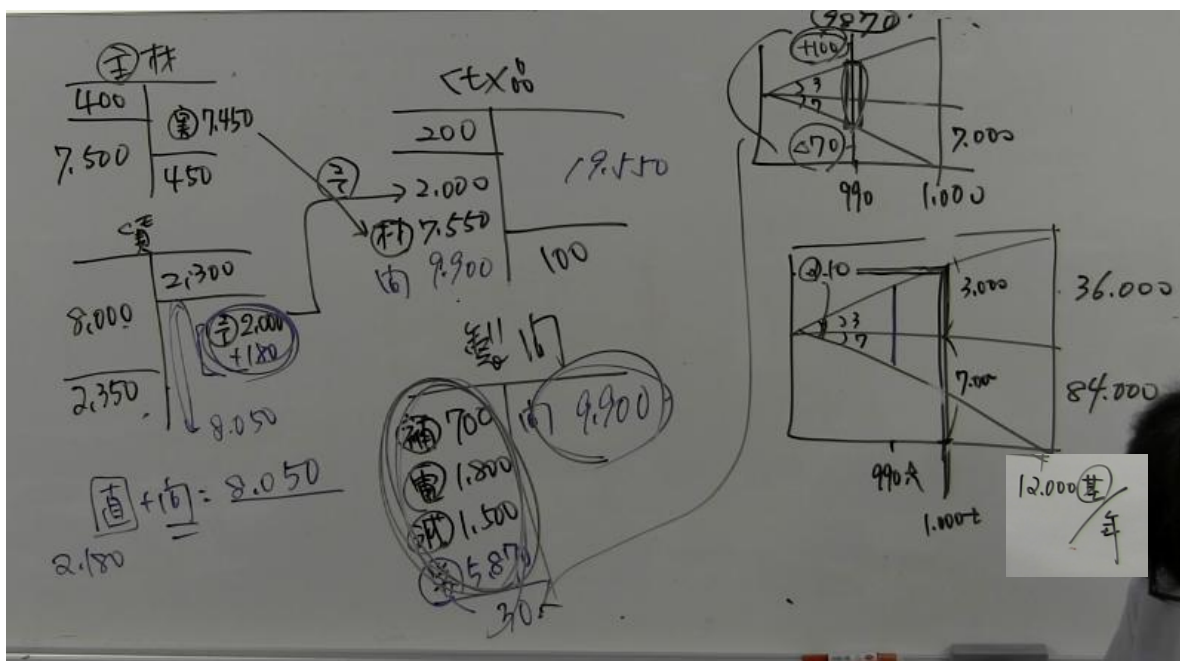 主材
400
実 7.450
7.500
450
賃
2,300
8,000
予 2,000
+180
2,350
8.050
直+間=8.050
2.180
仕×品
200
予
2.000
材 7.550
間 9.900
19.550
100
製 間
補 700
電 1.800
減 1.500
5.870
間 9.900
305
9870
+100
3
7
<70
990
1.000
7.000
@10
3
7
3.000
7.000
36.000
84.000
990
1.000
12.000 基
年